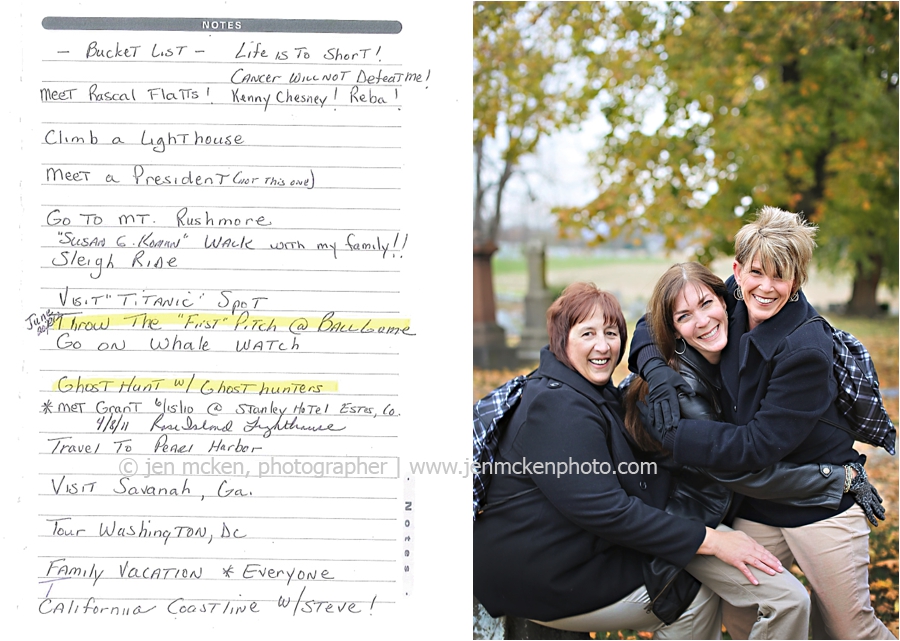 NOTES
- Bucket List - Life is To Short!
Cancer will not Defeat me!
Meet Rascal Flatts! Kenny Chesney! Reba!
Climb a Lighthouse
Meet a President (not this one)
Go To Mt. Rushmore
"Susan G. Koman" Walk with my family!!
Sleigh Ride
Visit "Titanic" Spot
June
Throw The "First" Pitch @ Ball Game
Go on Whale Watch
Ghost Hunt w/ Ghost hunters
* Met Grant 6/15/10 @ Stanley Hotel Estes, Co.
4/8/11 Rose Island Lighthouse
Travel To Pearl Harbor
© jen mcken, photographer | www.jenmckenphoto.com
Visit Savanah, Ga.
Notes
Tour Washington, DC
Family Vacation * Everyone
California Coastline w/Steve!